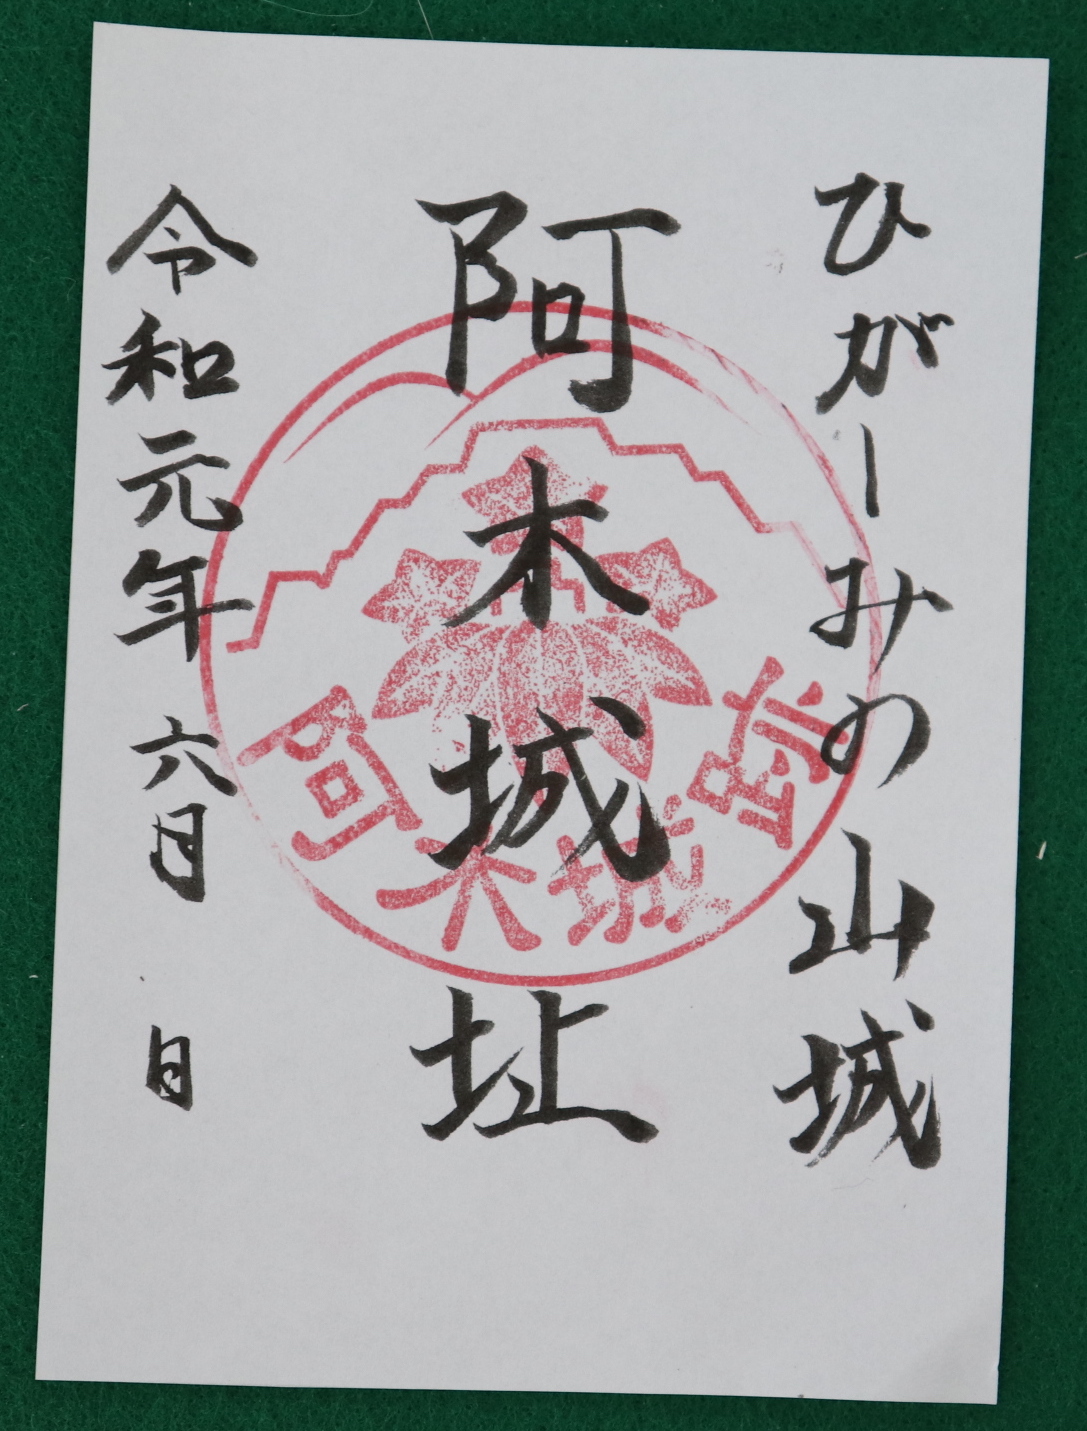 ひがーみの山城
阿木城址
阿木城跡
令和元年六月 日